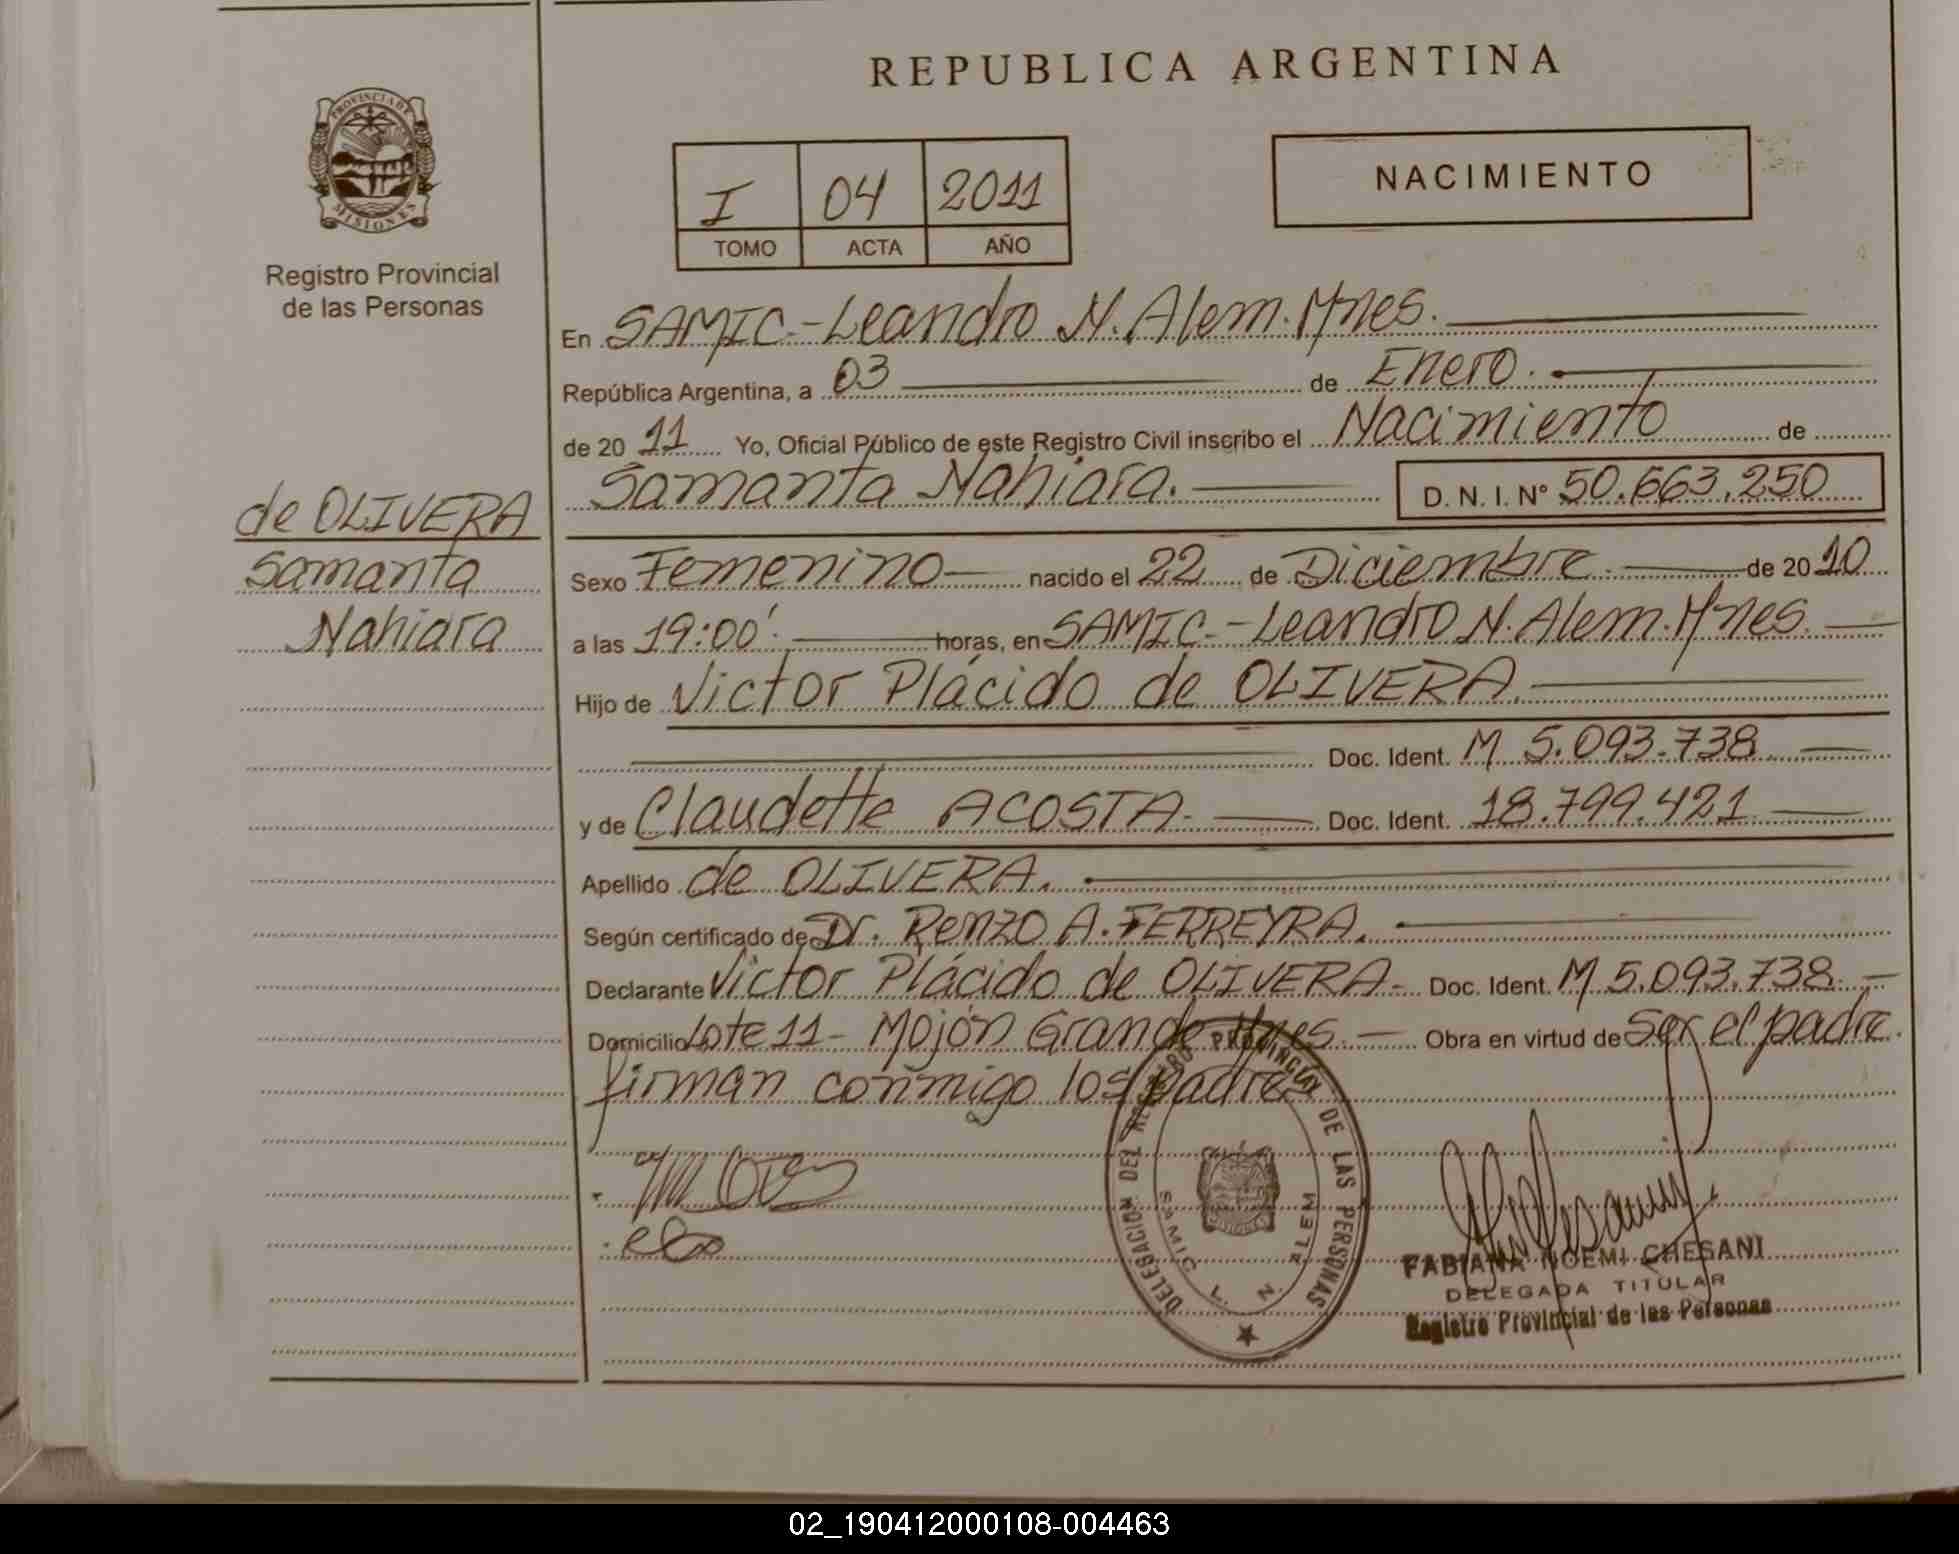 REPUBLICA ARGENTINA
PROVINCIA DE
MISIONES
Registro Provincial
de las Personas
I 04 2011
TOMO ACTA AÑO
NACIMIENTO
En SAMIC.-Leandro N. Alem. Mnes.
República Argentina, a 03 de Enero.
de 20 11 Yo, Oficial Público de este Registro Civil inscribo el Nacimiento de
Samanta Nahiara. D. N. I. Nº 50.663.250
de OLIVERA
Samanta
Nahiara
Sexo Femenino nacido el 22 de Diciembre de 20 10
a las 19:00' horas, en SAMIC.-Leandro N. Alem. Mnes.
Hijo de Victor Plácido de OLIVERA.
Doc. Ident. M 5.093.738
y de Claudette ACOSTA. Doc. Ident. 18.799.421
Apellido de OLIVERA.
Según certificado de Dr. Renzo A. FERREYRA.
Declarante Victor Plácido de OLIVERA- Doc. Ident. M 5.093.738.
Domicilio Lote 11- Mojón Grande Mnes. Obra en virtud de ser el padre.
firman conmigo los padres
DELEGACION DEL REGISTRO PROVINCIAL DE LAS PERSONAS
SAMIC L. N. ALEM
FABIANA NOEMI CHESANI
DELEGADA TITULAR
Registro Provincial de las Personas
02_190412000108-004463